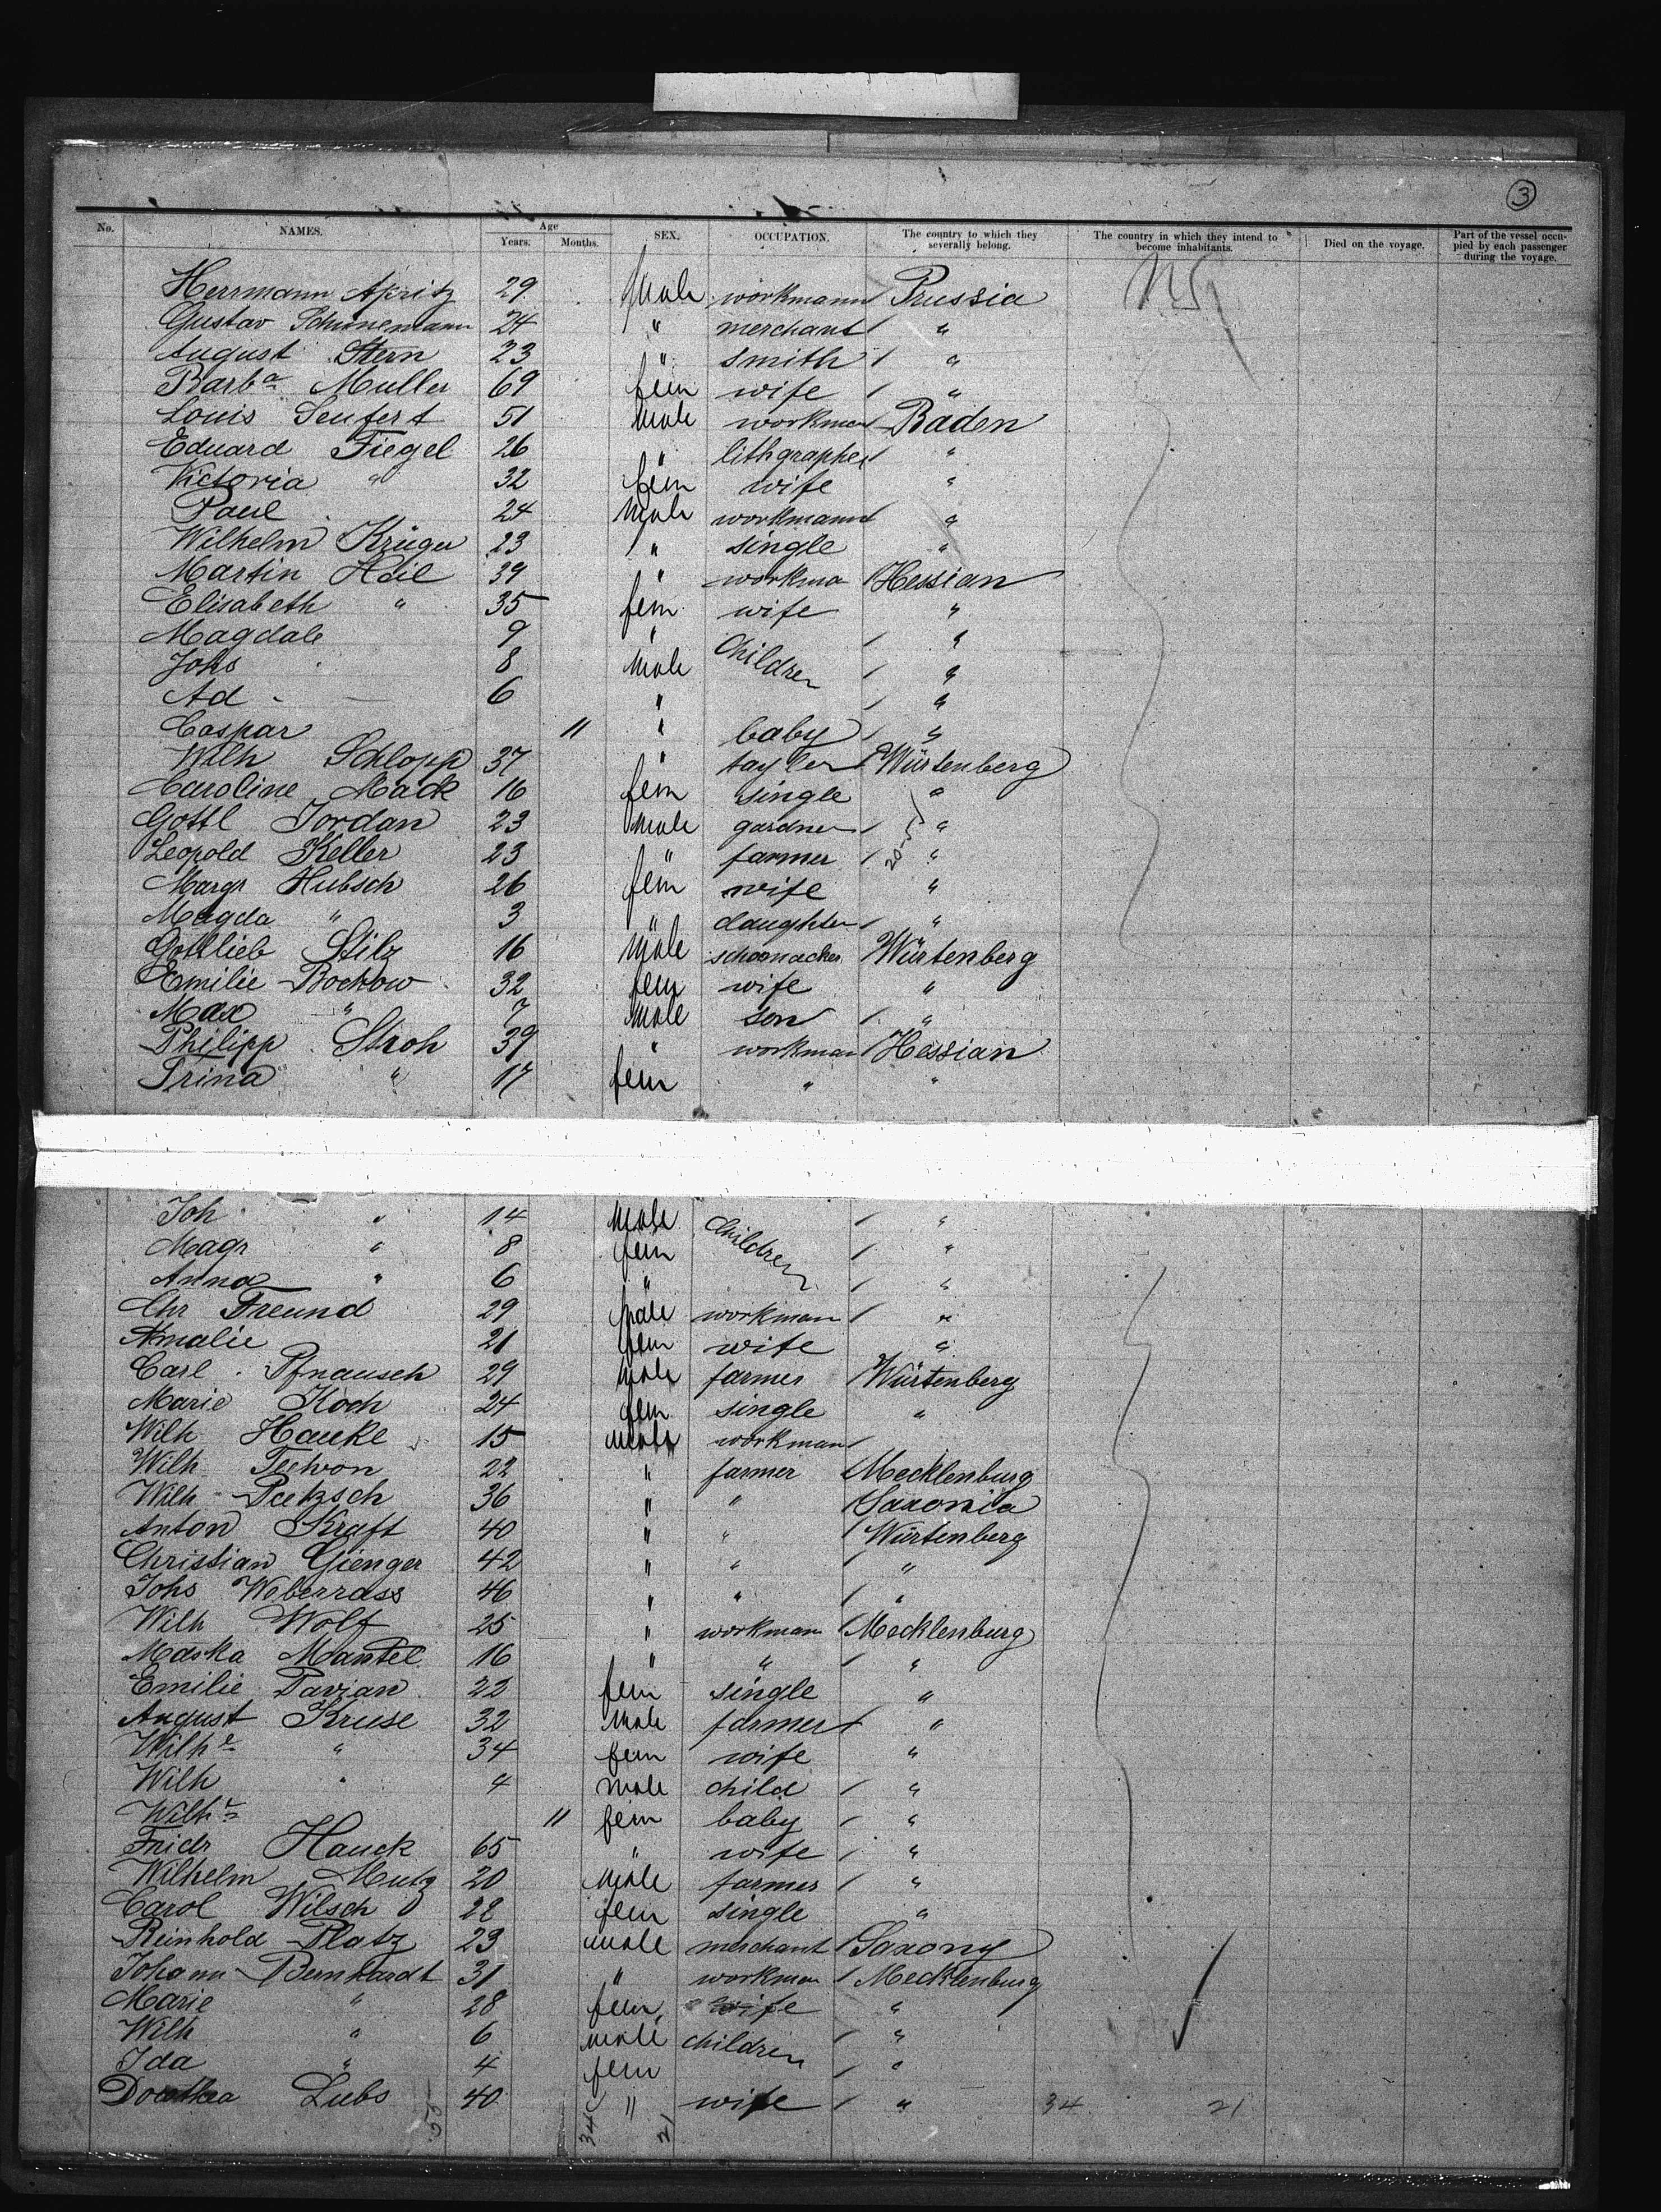 3
No. NAMES. Age Years. Months. SEX. OCCUPATION. The country to which they severally belong. The country in which they intend to become inhabitants. Died on the voyage. Part of the vessel occupied by each passenger during the voyage.
Herrmann Apritz 29 Male workmann Prussia US
Gustav Schünemann 24 " merchant "
August Stern 23 " smith "
Barba Muller 69 fem wife "
Louis Seufert 51 Male workman Baden
Eduard Fiegel 26 " lithgrapher "
Victoria " 32 fem wife "
Paul 24 Male workmann "
Wilhelm Krüger 23 " single "
Martin Heil 39 " workma Hessian
Elisabeth " 35 fem wife "
Magdale 9 " Children "
Johs 8 Male "
Ad 6 " "
Caspar 11 " baby "
Wilh Schlopp 37 " tayler Würtenberg
Caroline Mack 16 fem single "
Gottl Jordan 23 Male gardner "
Leopold Keller 23 " farmer 20 "
Margr Hubsch 26 fem wife "
Magda " 3 " daughter "
Gottlieb Stilz 16 Male schoomacher Würtenberg
Emilie Bockow 32 fem wife "
Max " 7 Male son "
Philipp Stroh 39 " workman Hessian
Trina " 17 fem " "
Joh " 14 Male Children "
Magr " 8 fem "
Anna " 6 " "
Chr Freund 29 Male workman "
Amalie 21 fem wife "
Carl Pfnausch 29 Male farmer Würtenberg
Marie Koch 24 fem single "
Wilh Hauke 15 Male workman
Wilh 22 " farmer Mecklenburg
Wilh Paetzsch 36 " " Saxonia
Anton Kraft 40 " " Würtenberg
Christian Gienger 42 " " "
Johs Weberrass 46 " " "
Wilh Wolf 25 " workman Mecklenburg
Maska Mantel 16 " " "
Emilie Parzan 22 fem single "
August Kruse 32 Male farmer "
Wilhe " 34 fem wife "
Wilh " 4 male child "
Wilhe 11 fem baby "
Fridr Hauck 65 " wife "
Wilhelm Mutz 20 Male farmer "
Carol Wilsch 22 fem single "
Reinhold Platz 23 male merchant Saxony
Johann Bernhardt 31 " workman Mecklenburg
Marie " 28 fem wife "
Wilh " 6 male children "
Ida " 4 fem "
Dorothea Lubs 40 " wife " 34 21
55 34 21